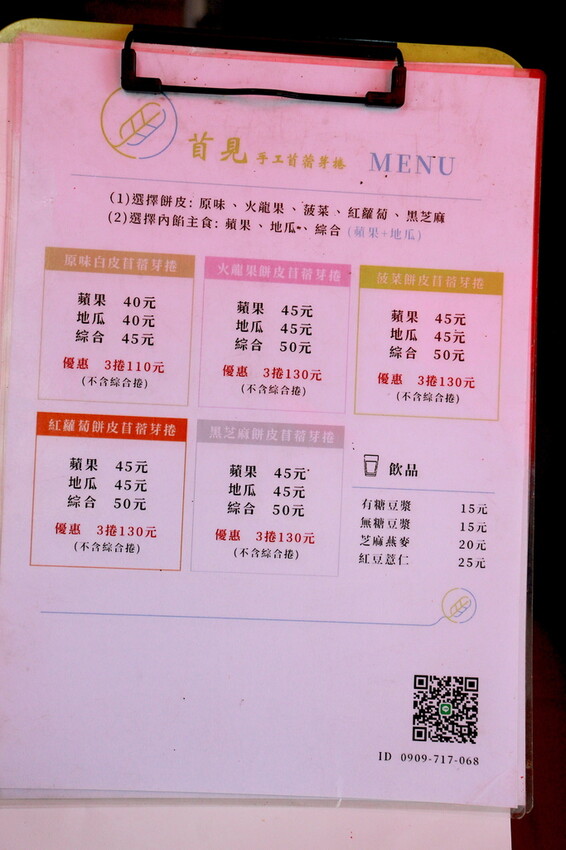 苜見 手工苜蓿芽捲 MENU
(1)選擇餅皮: 原味、火龍果、菠菜、紅蘿蔔、黑芝麻
(2)選擇內餡主食: 蘋果、地瓜、綜合 (蘋果+地瓜)
原味白皮苜蓿芽捲
蘋果 40元
地瓜 40元
綜合 45元
優惠 3捲110元
(不含綜合捲)
火龍果餅皮苜蓿芽捲
蘋果 45元
地瓜 45元
綜合 50元
優惠 3捲130元
(不含綜合捲)
菠菜餅皮苜蓿芽捲
蘋果 45元
地瓜 45元
綜合 50元
優惠 3捲130元
(不含綜合捲)
紅蘿蔔餅皮苜蓿芽捲
蘋果 45元
地瓜 45元
綜合 50元
優惠 3捲130元
(不含綜合捲)
黑芝麻餅皮苜蓿芽捲
蘋果 45元
地瓜 45元
綜合 50元
優惠 3捲130元
(不含綜合捲)
飲品
有糖豆漿 15元
無糖豆漿 15元
芝麻燕麥 20元
紅豆薏仁 25元
ID 0909-717-068